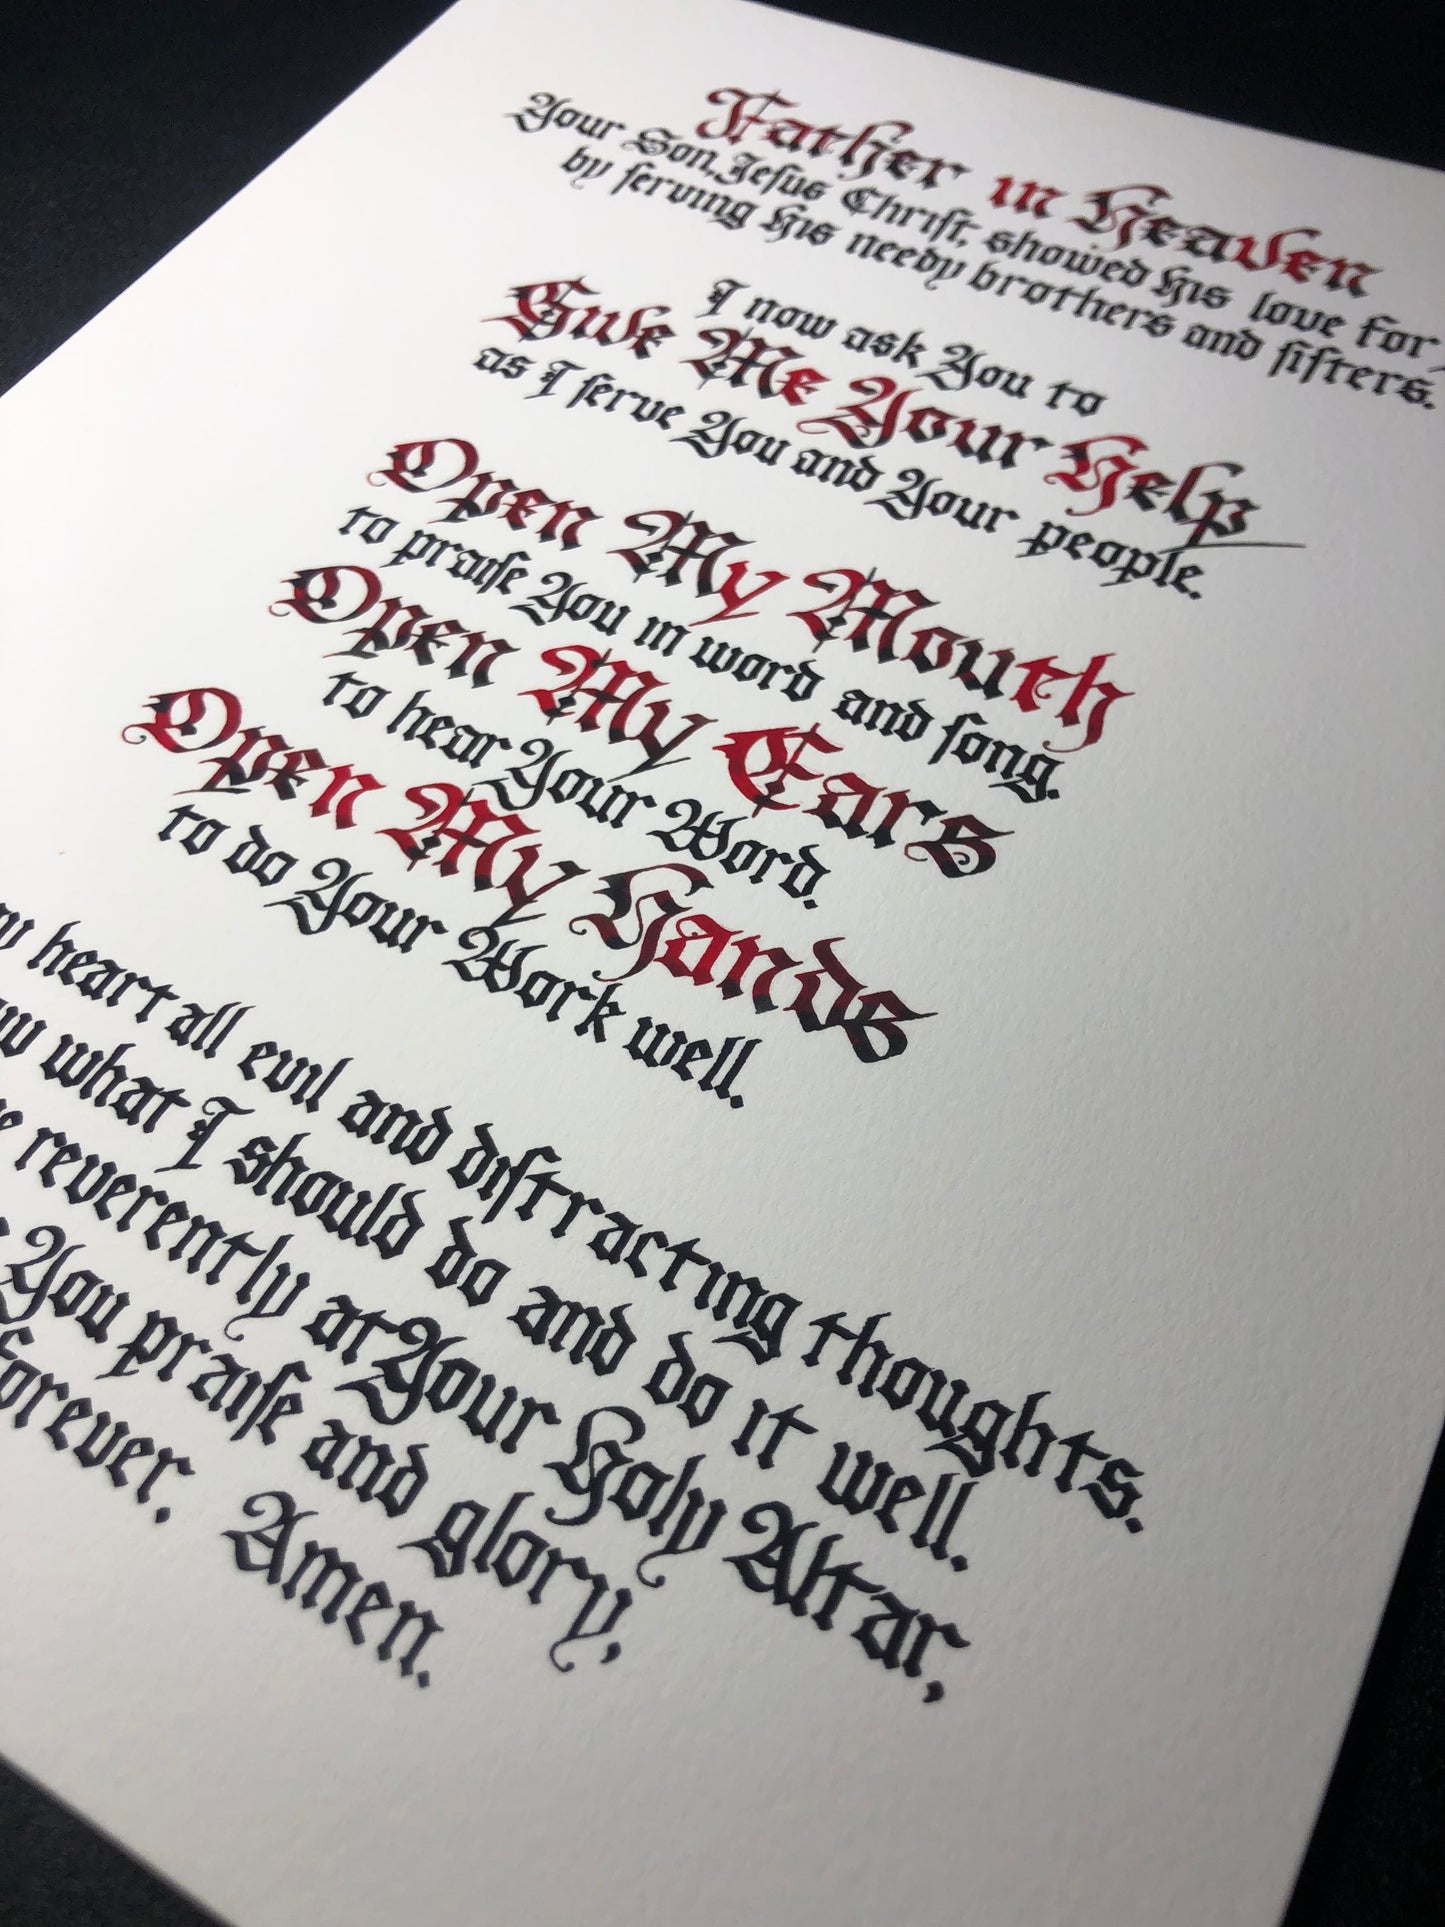 Father in Heaven
Your Son, Jeſus Chriſt, showed His love for
by ſerving His needy brothers and ſiſters.
I now ask You to
Give Me Your Help
as I ſerve You and Your people.
Open My Mouth
to praiſe You in word and ſong.
Open My Ears
to hear Your Word.
Open My Hands
to do Your Work well.
heart all evil and diſtracting thoughts.
what I should do and do it well.
reverently at Your Holy Altar,
You praiſe and glory,
forever. Amen.